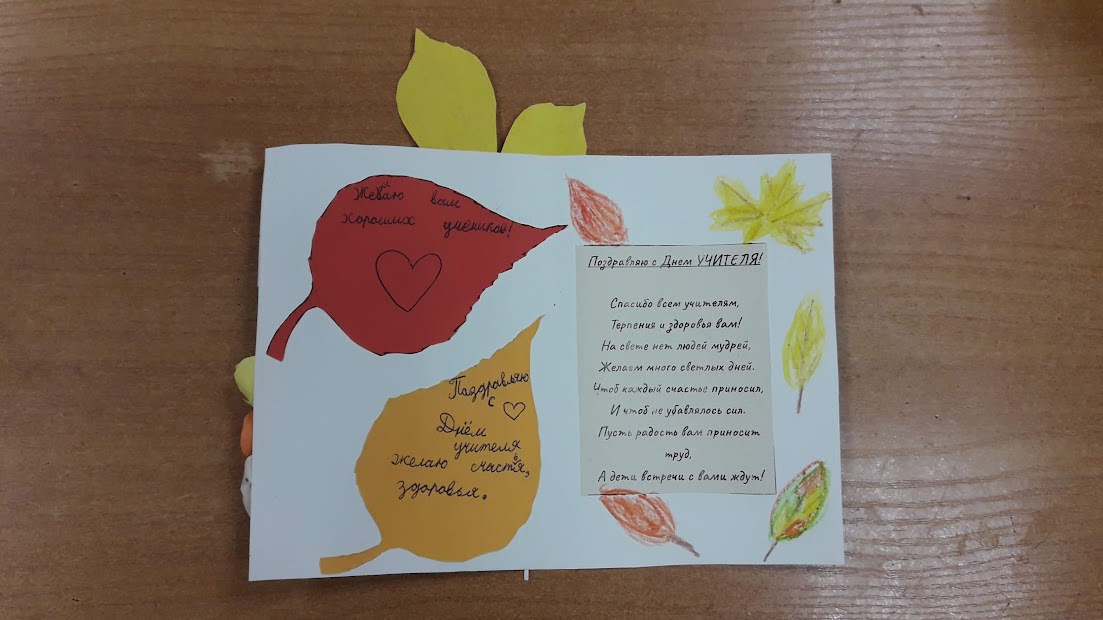 Желаю вам
хороших учеников!
Поздравляю
с
Днём
учителя
желаю счастья,
здоровья.
Поздравляю с Днем УЧИТЕЛЯ!
Спасибо всем учителям,
Терпения и здоровья вам!
На свете нет людей мудрей,
Желаем много светлых дней.
Чтоб каждый счастье приносил,
И чтоб не убавлялось сил.
Пусть радость вам приносит
труд,
А дети встречи с вами ждут!